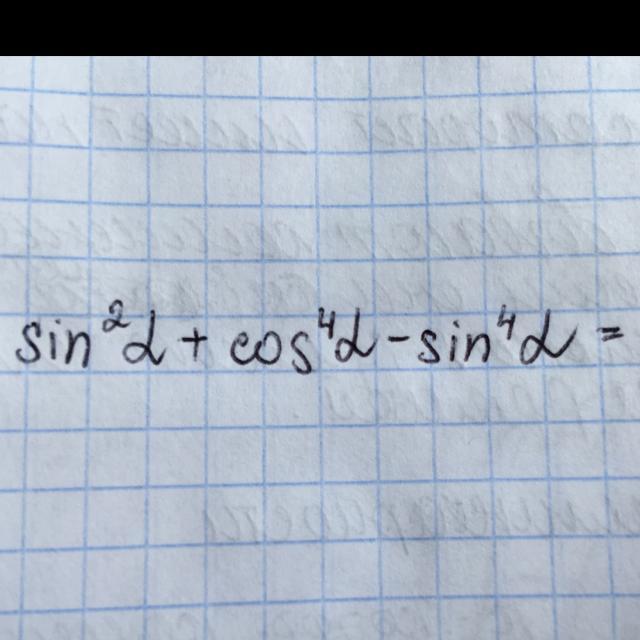 sin²α + cos⁴α - sin⁴α =